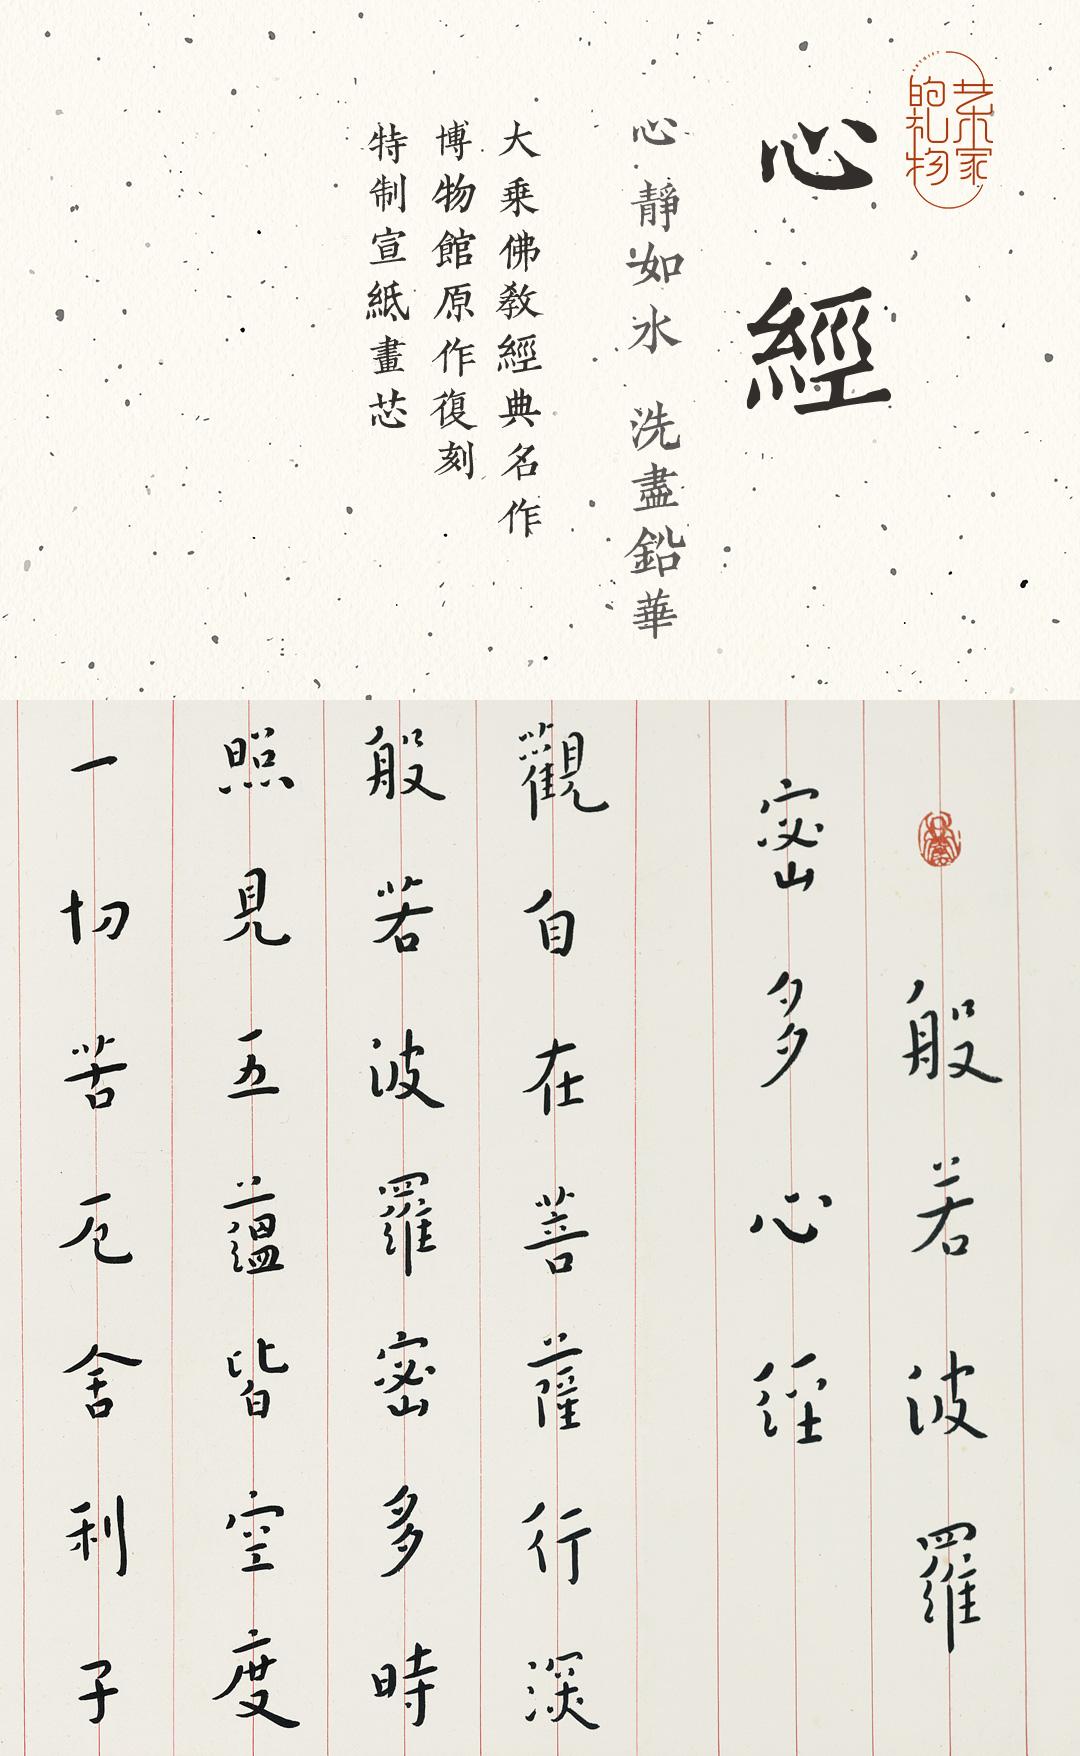 艺术家
的礼物
心經
心靜如水 洗盡鉛華
大乘佛教經典名作
博物館原作復刻
特制宣紙畫芯
般若波羅
密多心经
觀自在菩薩行深
般若波羅密多時
照見五蘊皆空度
一切苦厄舍利子